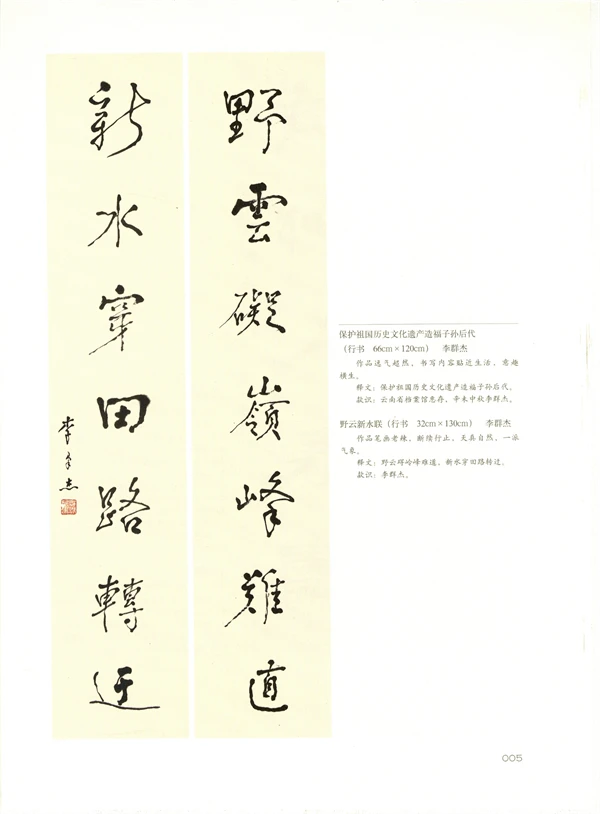 野雲礙嶺峰難直
新水穿田路轉迂
李群杰
保护祖国历史文化遗产造福子孙后代
（行书　66cm×120cm）　李群杰
作品逸气超然，书写内容贴近生活，意趣
横生。
释文：保护祖国历史文化遗产造福子孙后代。
款识：云南省档案馆惠存，辛未中秋李群杰。
野云新水联（行书　32cm×130cm）　李群杰
作品笔画老辣，断续行止，天真自然，一派
气象。
释文：野云碍岭峰难道，新水穿田路转迂。
款识：李群杰。
005